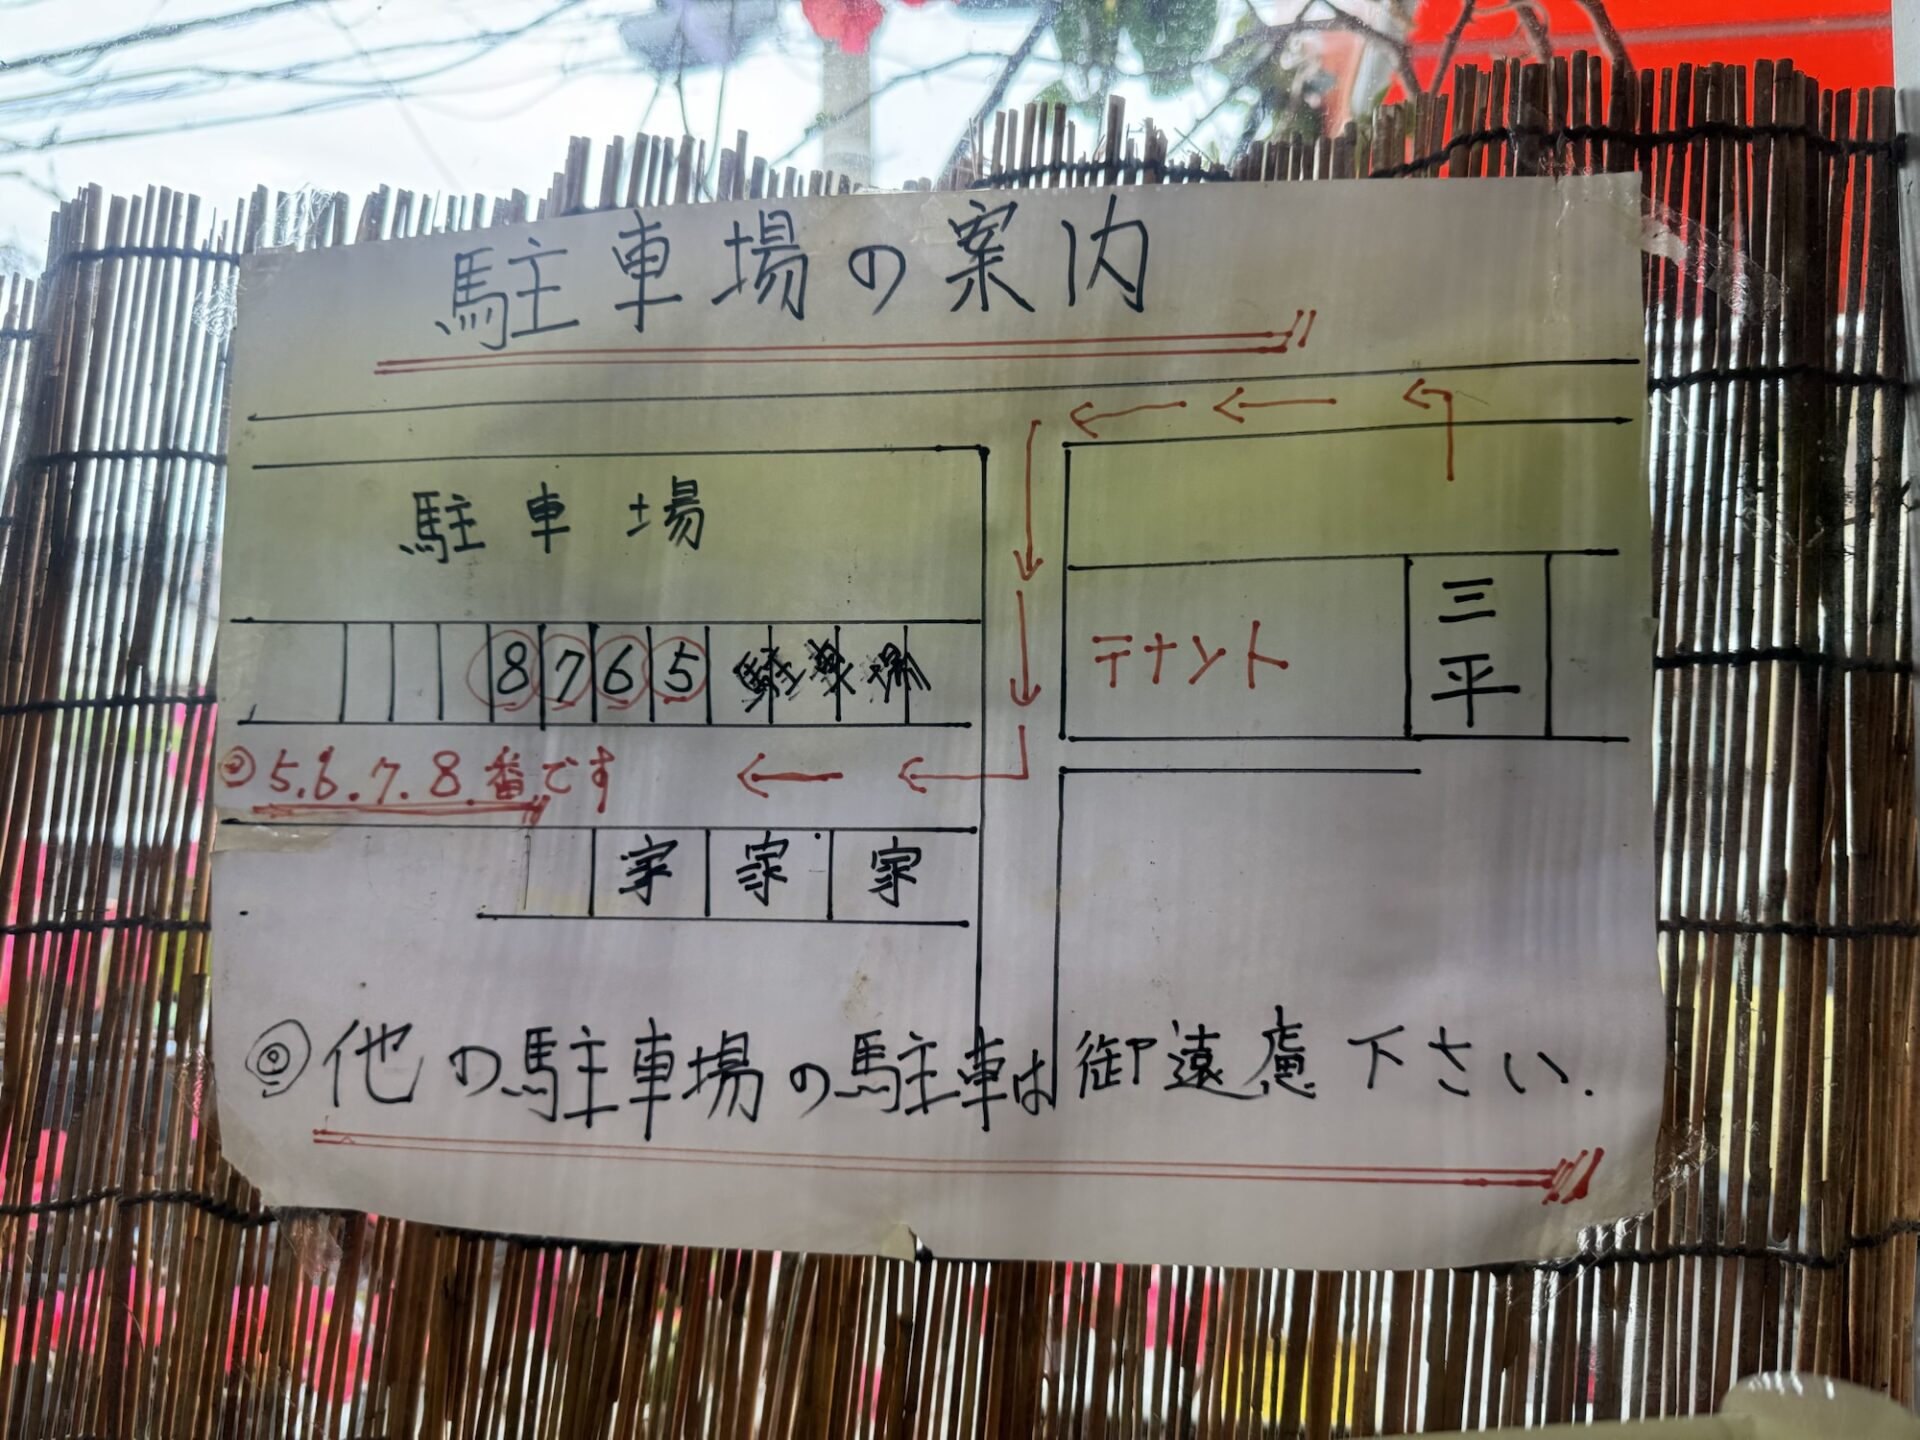 駐車場の案内
駐車場
三平
テナント
8 7 6 5 駐車場
◎5.6.7.8.番です
家 家 家
◎他の駐車場の駐車は御遠慮下さい.